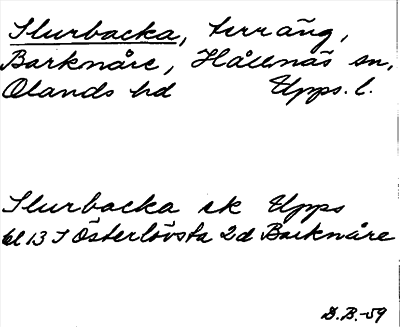 Slurbacka, terräng,
Barknåre, Hållnäs sn,
Olands hd Upps. l.
Slurbacka ek Upps
bl 13 I Österlövsta 2d Barknåre
D.B.-59